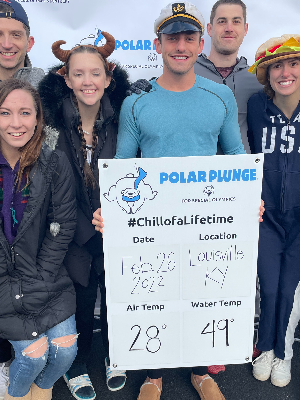 POLAR PLUNGE
TEAM
USA
POLAR PLUNGE
SPECIAL OLYMPICS
#ChillofaLifetime
Date
Location
Feb. 26
2022
Louisville
KY
Air Temp
Water Temp
28°
49°